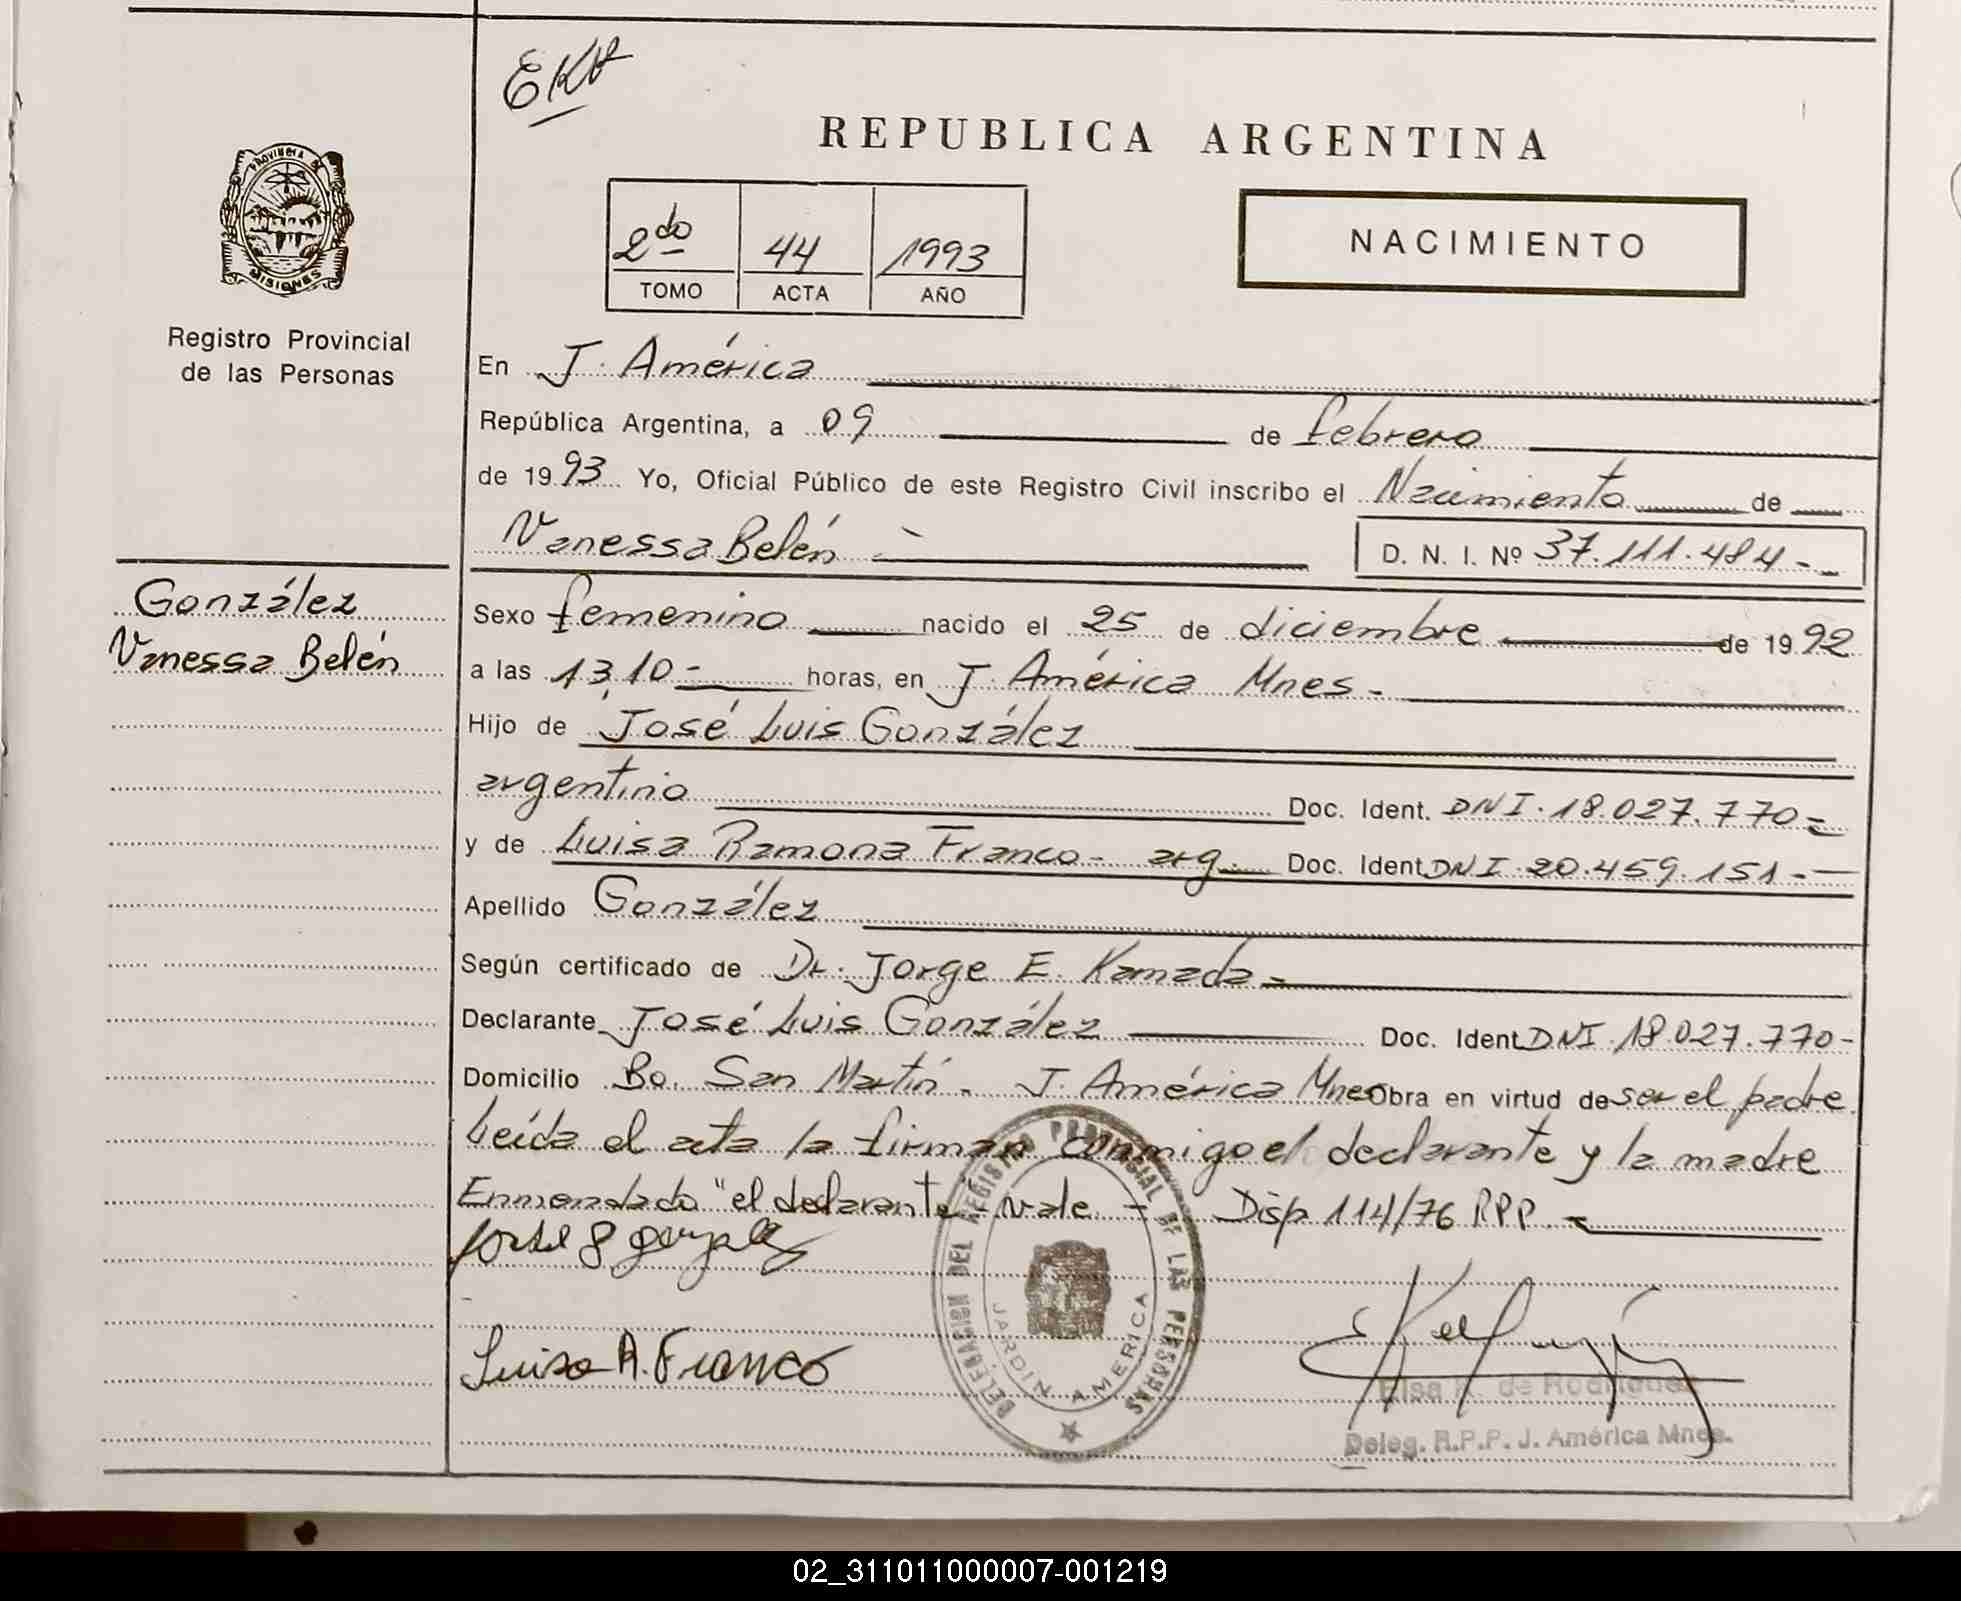 EKR
REPUBLICA ARGENTINA
PROVINCIA DE
MISIONES
Registro Provincial
de las Personas
2do 44 1993
TOMO ACTA AÑO
NACIMIENTO
En J. América
República Argentina, a 09 de febrero
de 1993 Yo, Oficial Público de este Registro Civil inscribo el Nacimiento de
Vanessa Belén D. N. I. Nº 37.111.484-
González
Vanessa Belén
Sexo femenino nacido el 25 de diciembre de 1992
a las 13,10- horas, en J. América Mnes-
Hijo de José Luis González
argentino Doc. Ident. DNI. 18.027.770=
y de Luisa Ramona Franco- arg. Doc. Ident DNI. 20.459.151-
Apellido González
Según certificado de Dr. Jorge E. Kamada-
Declarante José Luis González Doc. Ident DNI. 18.027.770-
Domicilio Bo. San Martín. J. América Mnes Obra en virtud de ser el padre.
Leída el acta la firman conmigo el declarante y la madre
Enmendado "el declarante- vale - Disp 114/76 RPP.-
Luisa R. Franco
DELEGACION DEL REGISTRO PROVINCIAL DE LAS PERSONAS
JARDIN AMERICA
Elsa K. de Rodriguez
Deleg. R.P.P. J. América Mnes.
02_311011000007-001219